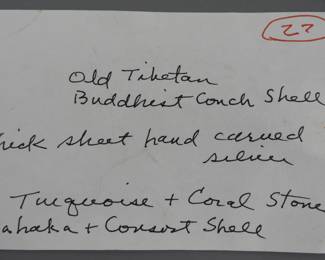 22
Old Tibetan
Buddhist Conch Shell
hick sheet hand carved
silver
Turquoise + Coral Stone
ahaka + Consort Shell